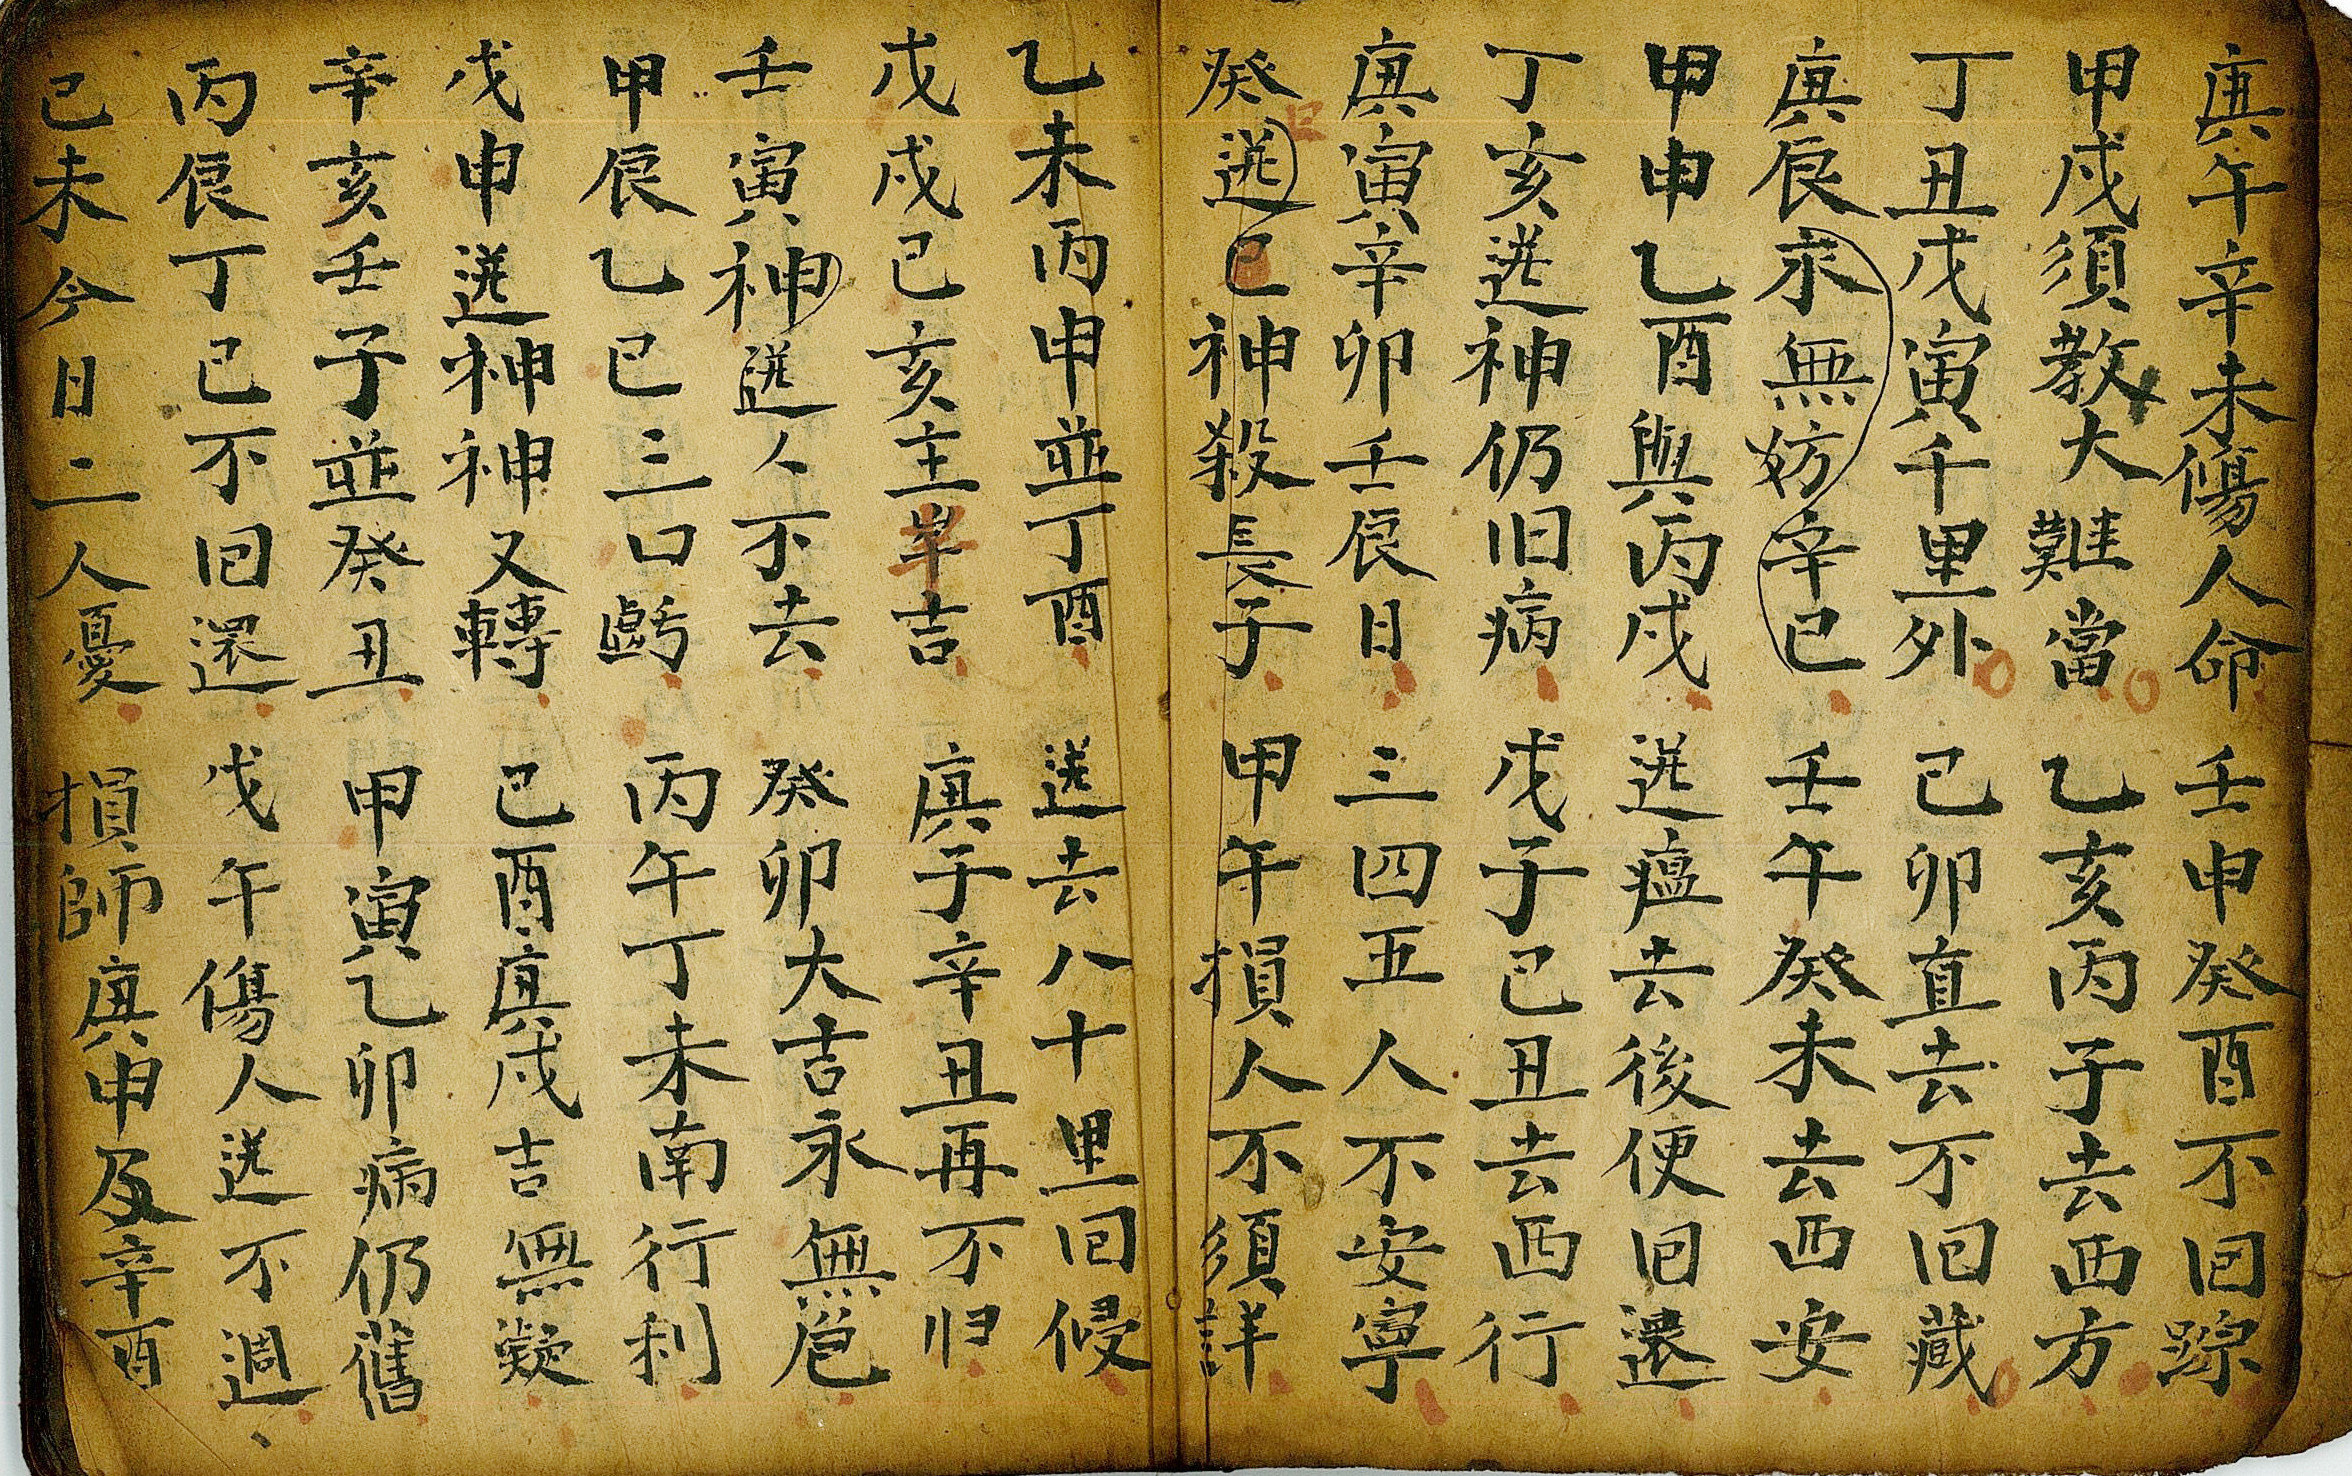 庚午辛未傷人命 壬申癸酉不囘踪
甲戌須教大難當 乙亥丙子去西方
丁丑戊寅千里外 己卯直去不囘藏
庚辰求無妨辛巳 壬午癸未去西安
甲申乙酉與丙戌 送瘟去後便囘還
丁亥送神仍旧病 戊子己丑去西行
庚寅辛卯壬辰日 三四五人不安寧
癸送巳神殺長子 甲午損人不須詳
乙未丙申並丁酉 送去八十里囘侵
戊戌己亥主早吉 庚子辛丑再不归
壬寅神送人不去 癸卯大吉永無危
甲辰乙巳三口虧 丙午丁未南行利
戊申送神神又轉 己酉庚戌吉無凝
辛亥壬子並癸丑 甲寅乙卯病仍舊
丙辰丁巳不囘還 戊午傷人送不週
己未今日二人憂 損師庚申及辛酉